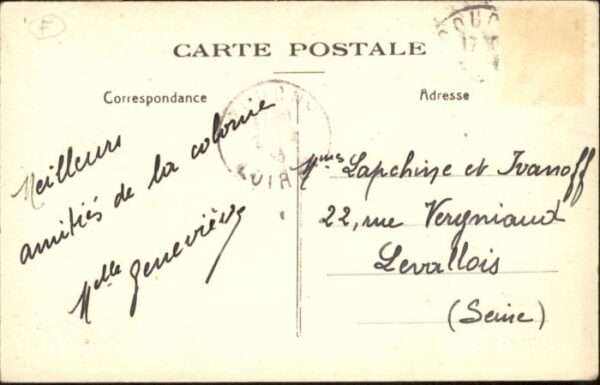 F
CARTE POSTALE
Correspondance
Adresse
Meilleurs
amitiés de la colonie
Melle Geneviève
LOIRET
Mmes Lapchine et Ivanoff
22, rue Vergniaud
Levallois
(Seine)